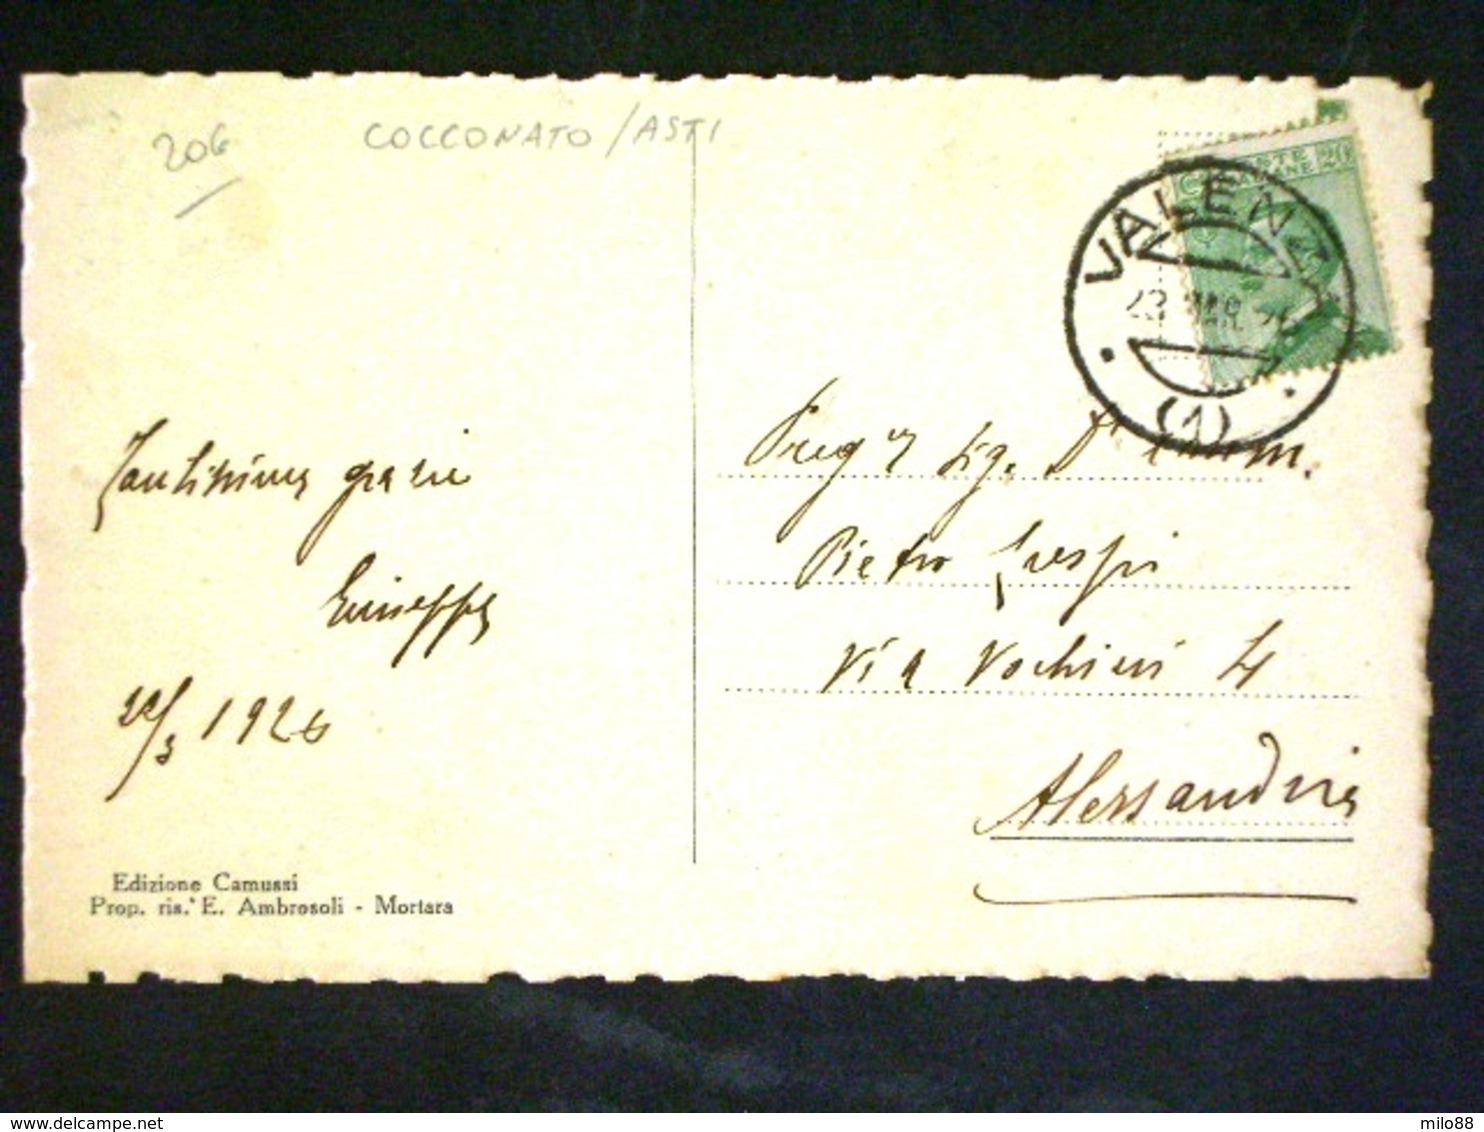 206
COCCONATO / ASTI
POSTE ITALIANE 20 C
VALENZA
23 MAR. 26
(1)
Tantissime grazie
Giuseppe
22/3 1926
Preg. Sig. D.
Pietro Crespi
Via Vochieri 4
Alessandria
Edizione Camussi
Prop. ris. E. Ambrosoli - Mortara
milo88